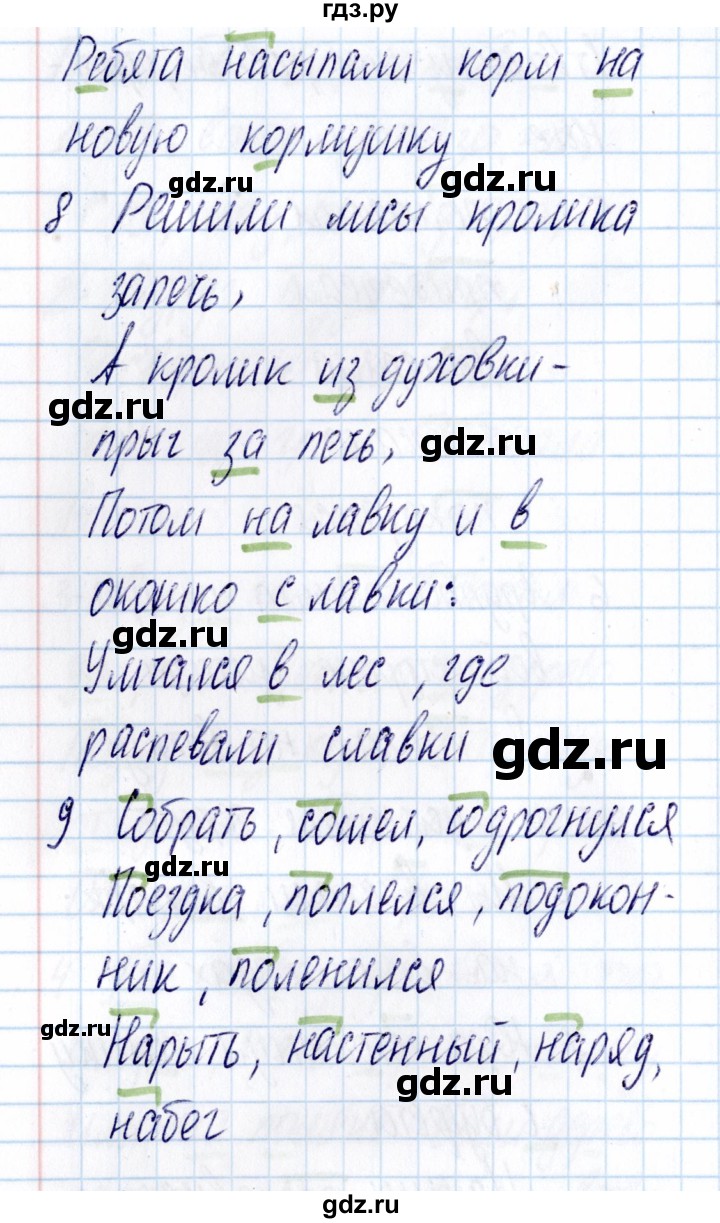 гдз.ру
Ребята насыпали корм на
новую кормушку
gdz.ru gdz.ru
8 Решили лисы кролика
запечь,
А кролик из духовки-
gdz.ru
прыг за печь,
gdz.ru
Потом на лавку и в
окошко с лавки:
gdz.ru
Умчался в лес, где
распевали славки
gdz.ru
9 Собрать, сошел, содрогнулся
gdz.ru
Поездка, поплелся, подокон-
ник, поленился
gdz.ru
Нарыть, настенный, наряд,
gdz.ru
набег
gdz.ru